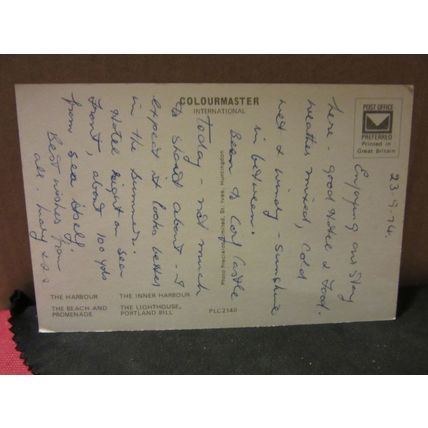 COLOURMASTER
INTERNATIONAL
POST OFFICE
PREFERRED
Printed in
Great Britain
23-9-74.
Enjoying our stay
here - good Hotel & food.
weather mixed, cold
wet & windy - sunshine
in between.
Been to Castle
today - not much
to shout about - I
expect it looks better
in the summer.
Hotel right on sea
front, about 100 yds
from sea itself.
Best wishes from
all.
THE HARBOUR
THE INNER HARBOUR
THE BEACH AND
PROMENADE
THE LIGHTHOUSE,
PORTLAND BILL
PLC2340